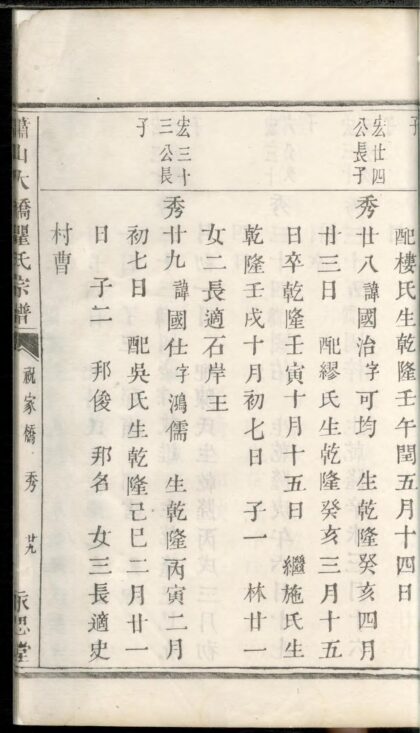 子
配樓氏生乾隆壬午閏五月十四日
宏廿四
公長子
秀廿八諱國治字可均 生乾隆癸亥四月
廿三日 配繆氏生乾隆癸亥三月十五
日卒乾隆壬寅十月十五日 繼施氏生
乾隆壬戌十月初七日 子一 林廿一
女二長適石岸王
宏三十
三公長
子
秀廿九諱國仕字鴻儒 生乾隆丙寅二月
初七日 配吳氏生乾隆己巳二月廿一
日 子二 邦俊 邦名 女三長適史
村曹
蕭山大橋瞿氏宗譜 祝家橋 秀 廿九 永思堂